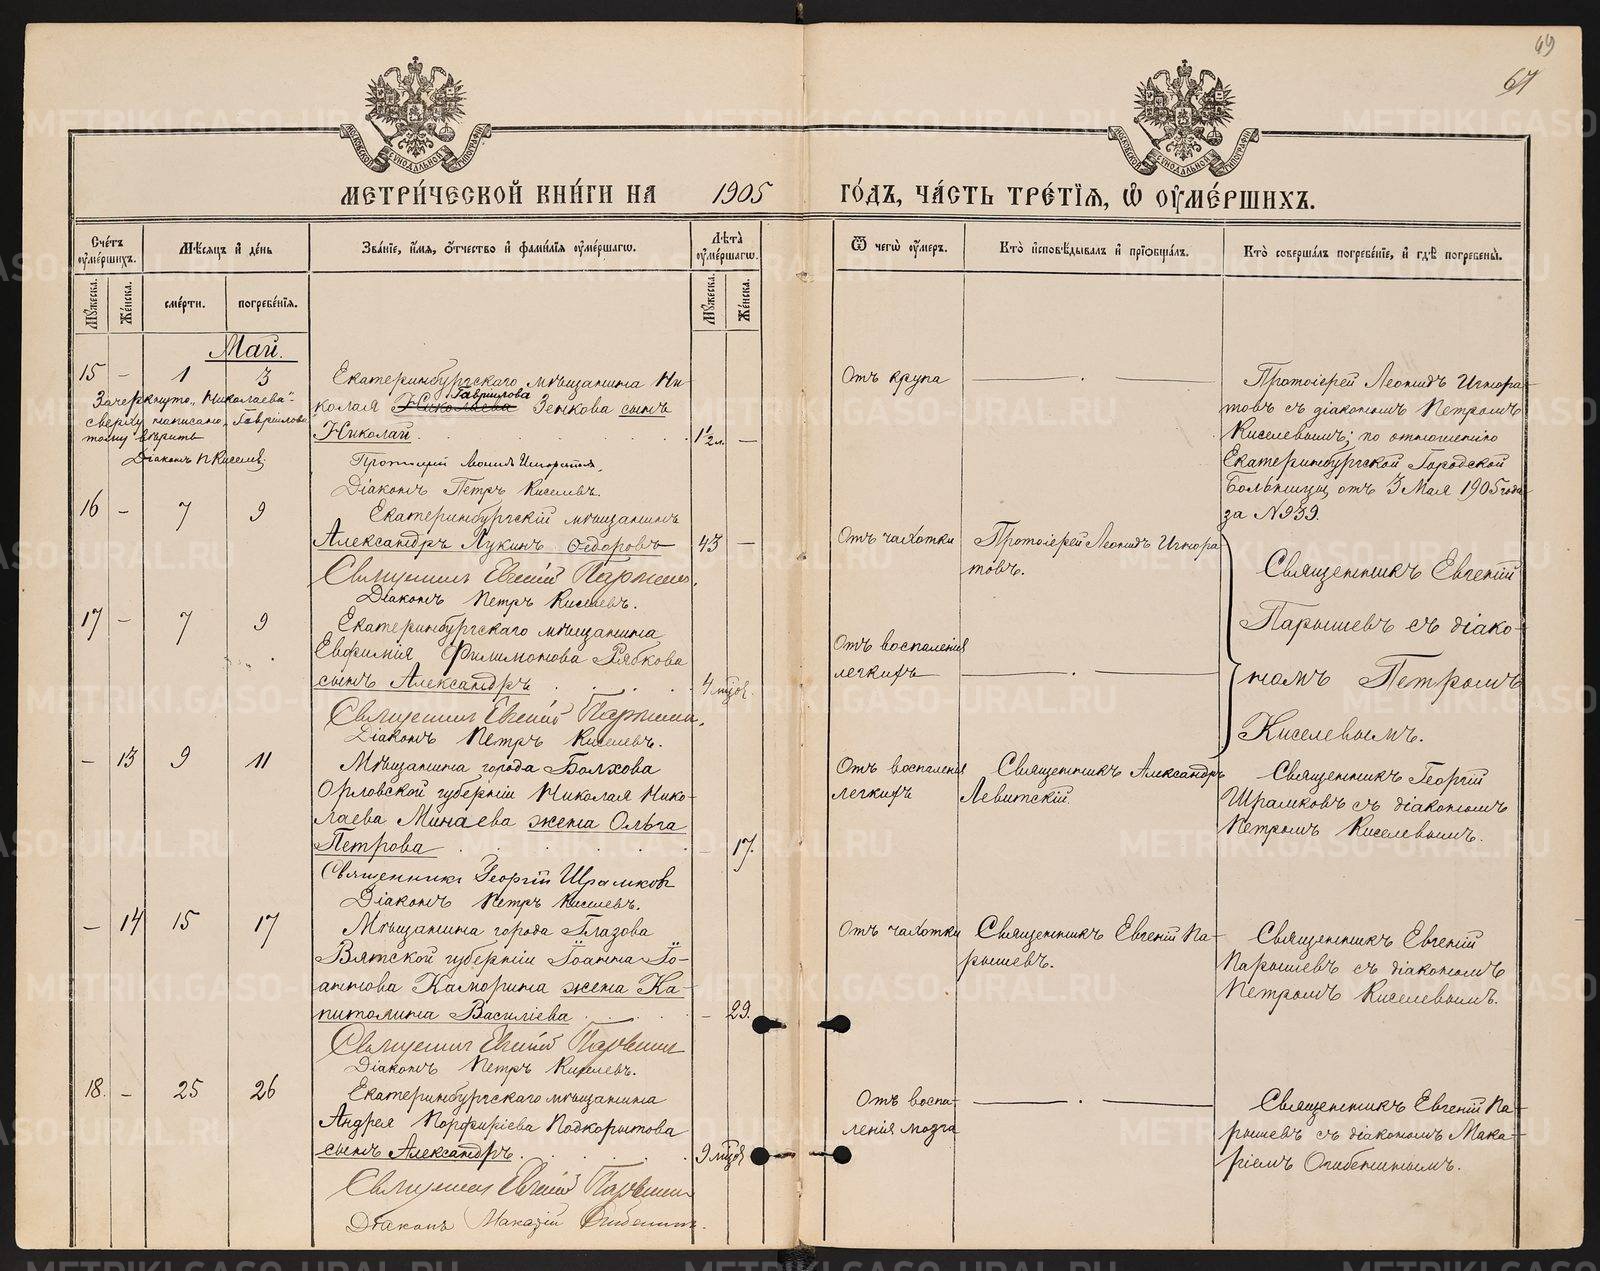 49
67
МЕТРИ́ЧЕСКОЙ КНИ́ГИ НА 1905 ГО́ДЪ, ЧА́СТЬ ТРЕ́ТІѦ, Ѿ ОУМЕ́РШИХЪ.
МОСКОВСКОЙ СѴНОДАЛЬНОЙ ТИПОГРАФІИ
МОСКОВСКОЙ СѴНОДАЛЬНОЙ ТИПОГРАФІИ
Счетъ оумершихъ.
Мѣсяцъ и день
Званіе, имя, отчество и фамилія оумершагѡ.
Лѣта оумершагѡ.
Ѿ чегѡ оумеръ.
Кто исповѣдывалъ и пріобщалъ.
Кто совершалъ погребеніе, и гдѣ погребены.
Мꙋжеска.
Женска.
смерти.
погребенія.
Мꙋжеска.
Женска.
Май.
15 - 1 3
Екатеринбургскаго мѣщанина Ни-
Гавріилова
колая Николаева Зенкова сынъ
Николай 1 1/2 л. —
Зачеркнуто „Николаева“
сверху написано „Гавріилова
тому вѣрить
Діаконъ П Киселев
Протоіерей Леонид Игноратов.
Діаконъ Петръ Киселевъ.
Отъ крупа
Протоіерей Леонидъ Игнора-
товъ съ діакономъ Петромъ
Киселевымъ; по отношенію
Екатеринбургской Городской
Больницы отъ 3 Мая 1905 года
за № 939.
16 - 7 9
Екатеринбургскій мѣщанинъ
Александръ Лукинъ Ѳедоровъ 43 —
Священник Евгеній Парышев.
Діаконъ Петръ Киселевъ.
Отъ чахотки
Протоіерей Леонидъ Игнора-
товъ.
Священникъ Евгеній
Парышевъ съ діако-
номъ Петромъ
Киселевымъ.
17 - 7 9
Екатеринбургскаго мѣщанина
Евфимія Филимонова Рябкова
сынъ Александръ 4 мцов.
Священник Евгеній Парышев.
Діаконъ Петръ Киселевъ.
Отъ воспаленія
легкихъ
- 13 9 11
Мѣщанина города Болхова
Орловской губерніи Николая Нико-
лаева Минаева жена Ольга
Петрова - 17.
Священникъ Георгій Шрамков
Діаконъ Петръ Киселевъ.
Отъ воспаленія
легкихъ
Священникъ Александръ
Левитскій.
Священникъ Георгій
Шрамковъ съ діакономъ
Петромъ Киселевымъ.
- 14 15 17
Мѣщанина города Глазова
Вятской губерніи Іоанна Іо-
аннова Каморина жена Ка-
питолина Василіева - 29.
Священник Евгеній Парышев
Діаконъ Петръ Киселевъ.
Отъ чахотки
Священникъ Евгеній Па-
рышевъ.
Священникъ Евгеній
Парышевъ съ діакономъ
Петромъ Киселевымъ.
18. - 25 26
Екатеринбургскаго мѣщанина
Андрея Порфиріева Подкорытова
сынъ Александръ. 9 мцов
Священник Евгеній Парышев
Діаконъ Макарій Огибенинъ.
Отъ воспа-
ленія мозга
Священникъ Евгеній Па-
рышевъ съ діакономъ Мака-
ріемъ Огибенинымъ.
METRIKI.GASO-URAL.RU